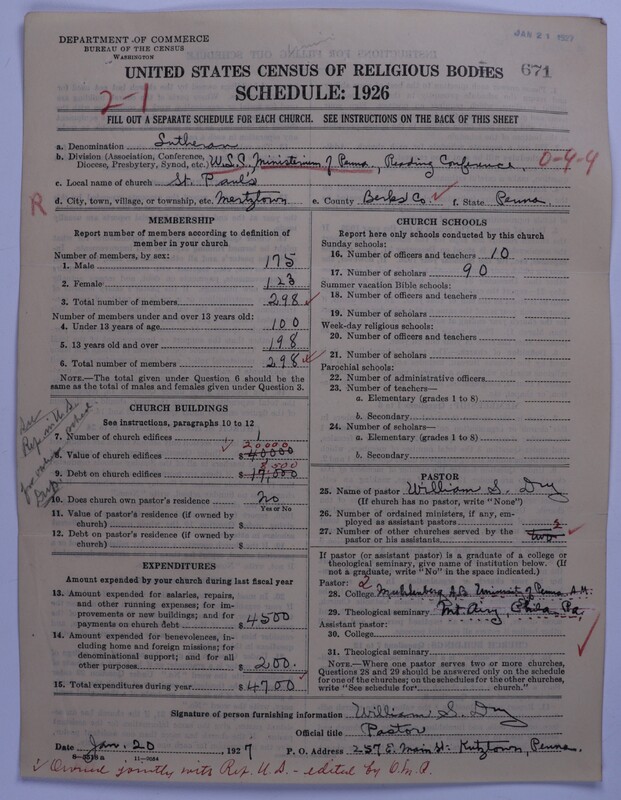 DEPARTMENT OF COMMERCE
BUREAU OF THE CENSUS
WASHINGTON
JAN 21 1927
UNITED STATES CENSUS OF RELIGIOUS BODIES 671
SCHEDULE: 1926
2-1
FILL OUT A SEPARATE SCHEDULE FOR EACH CHURCH. SEE INSTRUCTIONS ON THE BACK OF THIS SHEET
a. Denomination Lutheran
b. Division (Association, Conference, Diocese, Presbytery, Synod, etc.) Ministerium of Penna., Reading Conference, 0-4-4
c. Local name of church St. Paul's
R d. City, town, village, or township, etc. Mertztown e. County Berks Co. ✓ f. State Penna.
MEMBERSHIP
Report number of members according to definition of
member in your church
Number of members, by sex:
1. Male 175
2. Female 123
3. Total number of members 298 ✓
Number of members under and over 13 years old:
4. Under 13 years of age 100
5. 13 years old and over 198
6. Total number of members 298 ✓
NOTE.—The total given under Question 6 should be the
same as the total of males and females given under Question 3.
CHURCH BUILDINGS
See instructions, paragraphs 10 to 12
7. Number of church edifices 1
20000
✓ 8. Value of church edifices $ 40000
8,500
9. Debt on church edifices $ 17,000
10. Does church own pastor's residence No
Yes or No
11. Value of pastor's residence (if owned by
church) $
12. Debt on pastor's residence (if owned by
church) $
EXPENDITURES
Amount expended by your church during last fiscal year
13. Amount expended for salaries, repairs,
and other running expenses; for im-
provements or new buildings; and for
payments on church debt $ 4500
14. Amount expended for benevolences, in-
cluding home and foreign missions; for
denominational support; and for all
other purposes $ 200.
15. Total expenditures during year $ 4700 ✓
CHURCH SCHOOLS
Report here only schools conducted by this church
Sunday schools:
16. Number of officers and teachers 10
17. Number of scholars 90
Summer vacation Bible schools:
18. Number of officers and teachers
19. Number of scholars
Week-day religious schools:
20. Number of officers and teachers
21. Number of scholars
Parochial schools:
22. Number of administrative officers
23. Number of teachers—
a. Elementary (grades 1 to 8)
b. Secondary
24. Number of scholars—
a. Elementary (grades 1 to 8)
b. Secondary
PASTOR
25. Name of pastor William S. Dry
(If church has no pastor, write "None")
26. Number of ordained ministers, if any, em-
ployed as assistant pastors
27. Number of other churches served by the
pastor or his assistants two
If pastor (or assistant pastor) is a graduate of a college or
theological seminary, give name of institution below. (If
not a graduate, write "No" in the space indicated.)
Pastor: 2
28. College Muhlenberg A.B. University of Penna. A.M.
29. Theological seminary Mt. Airy, Phila Pa.
Assistant pastor:
30. College
31. Theological seminary
NOTE.—Where one pastor serves two or more churches,
Questions 28 and 29 should be answered only on the schedule
for one of the churches; on the schedules for the other churches,
write "See schedule for church."
Signature of person furnishing information William S. Dry
Official title Pastor
Date Jan. 20 1927 P. O. Address 257 E. Main St. Kutztown, Penna.
11—3684
✓ Owned jointly with Rep. U.S. - edited by